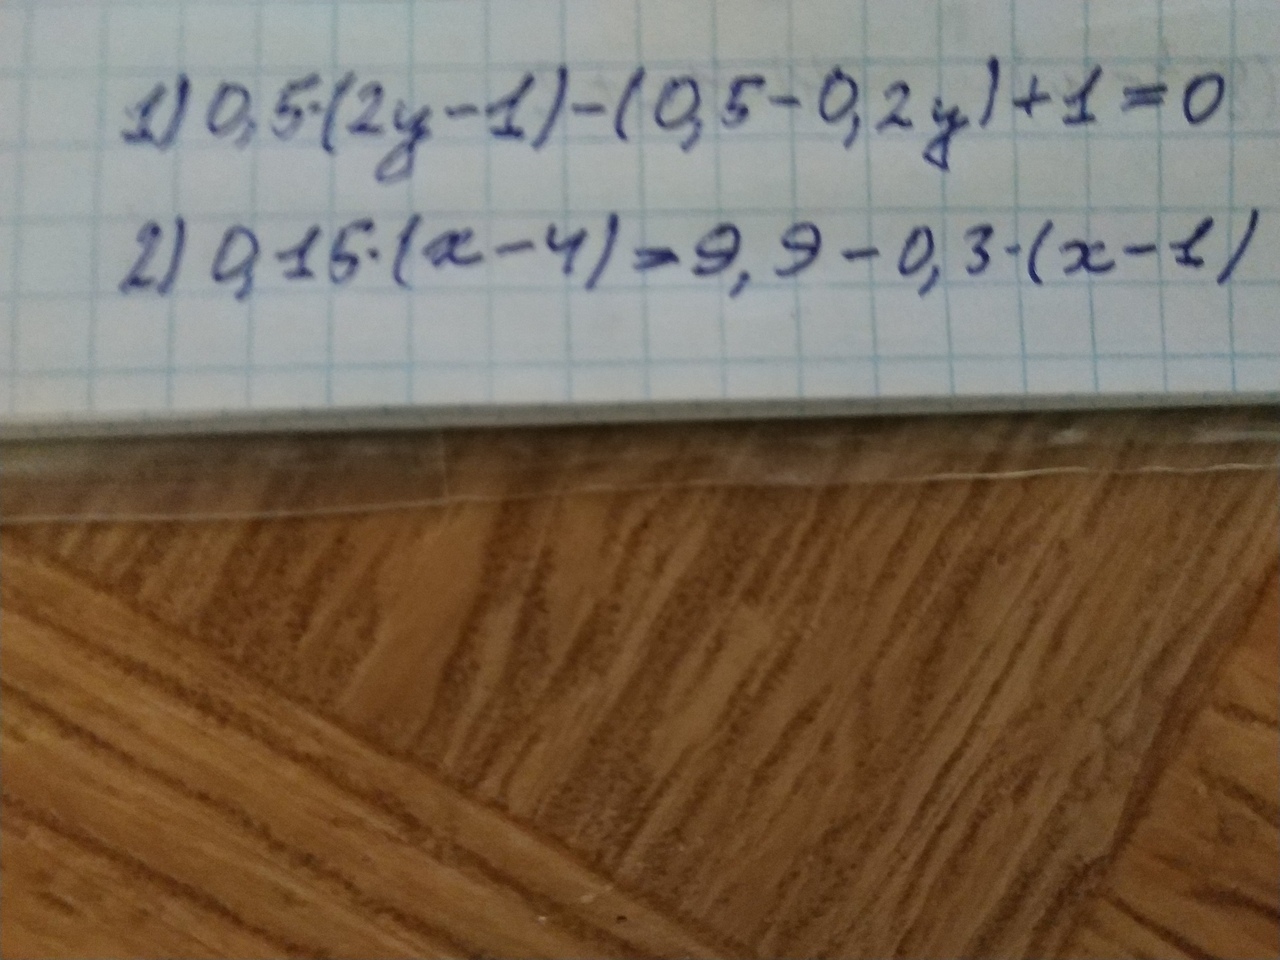 1) 0,5·(2y-1)-(0,5-0,2y)+1=0
2) 0,15·(x-4)=9,9-0,3·(x-1)